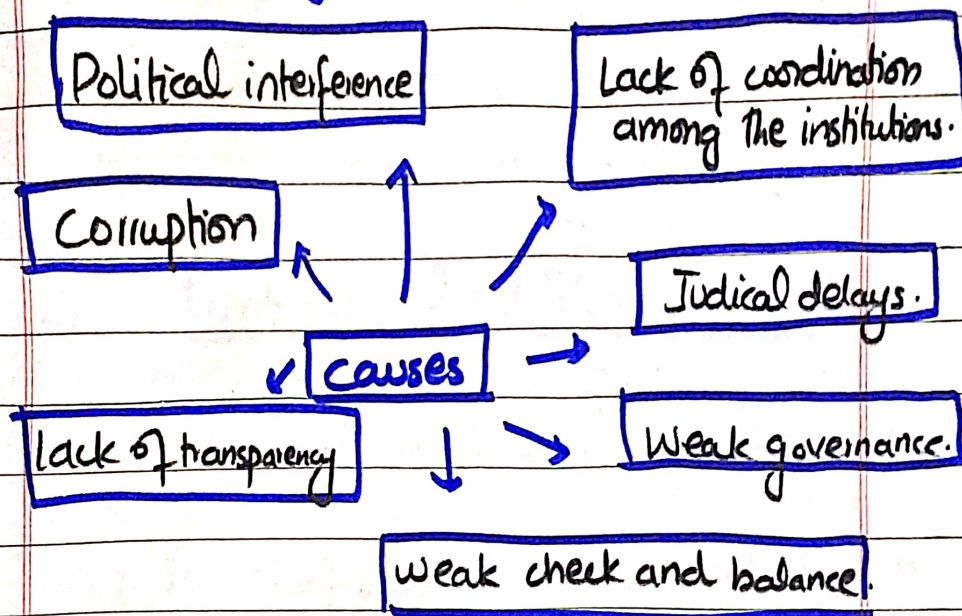 Political interference
Lack of coordination
among the institutions.
Corruption
Judical delays.
causes
lack of transparency
Weak governance.
weak check and balance.